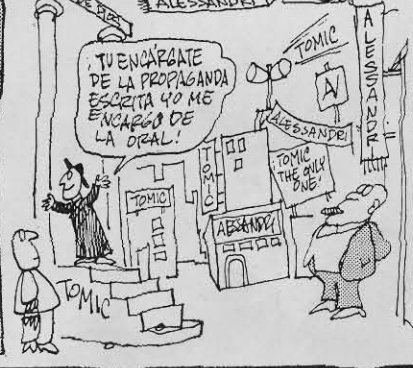 ALESSANDRI
¡TU ENCÁRGATE
DE LA PROPAGANDA
ESCRITA YO ME
ENCARGO DE
LA ORAL!
TOMIC
ALESSANDRI
AV
ALESSANDRI
TOMIC
¡TOMIC
THE ONLY
ONE!
TOMIC
ALESSANDRI
TOMIC